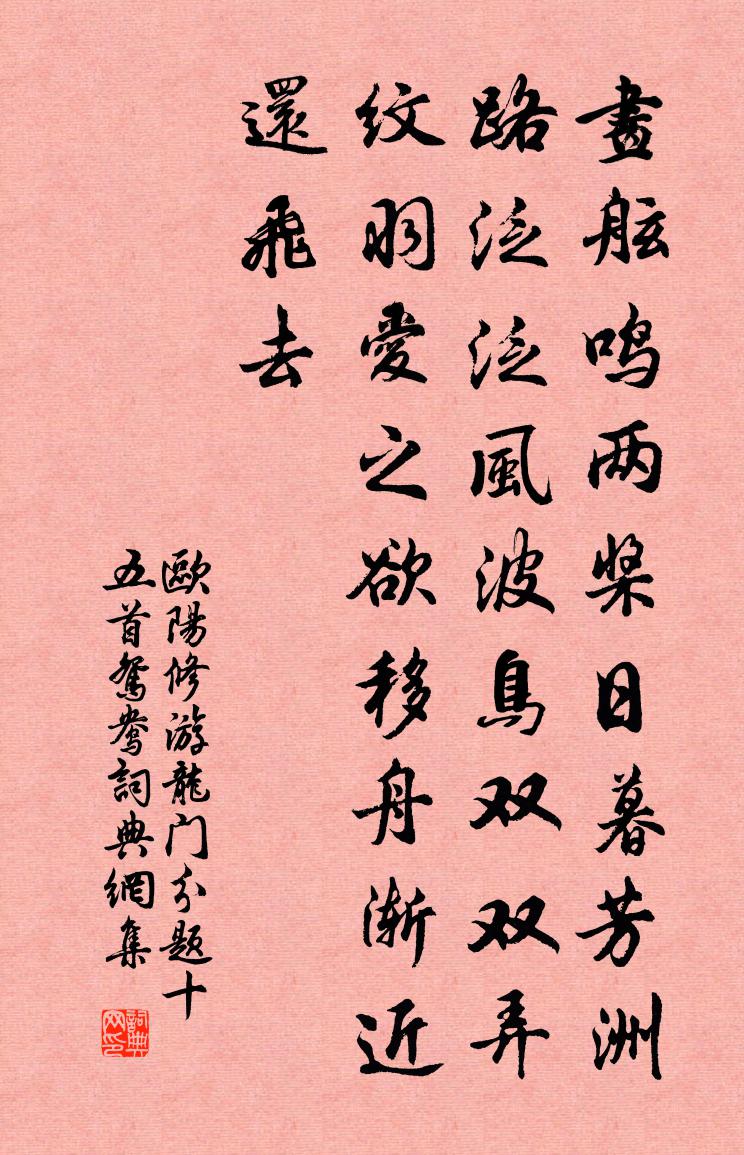 畫舷鸣两桨日暮芳洲
路泛泛風波鳥双双弄
纹羽愛之欲移舟渐近
還飛去
歐陽修游龍门分题十
五首鴛鴦詞典網集
詞典
网印